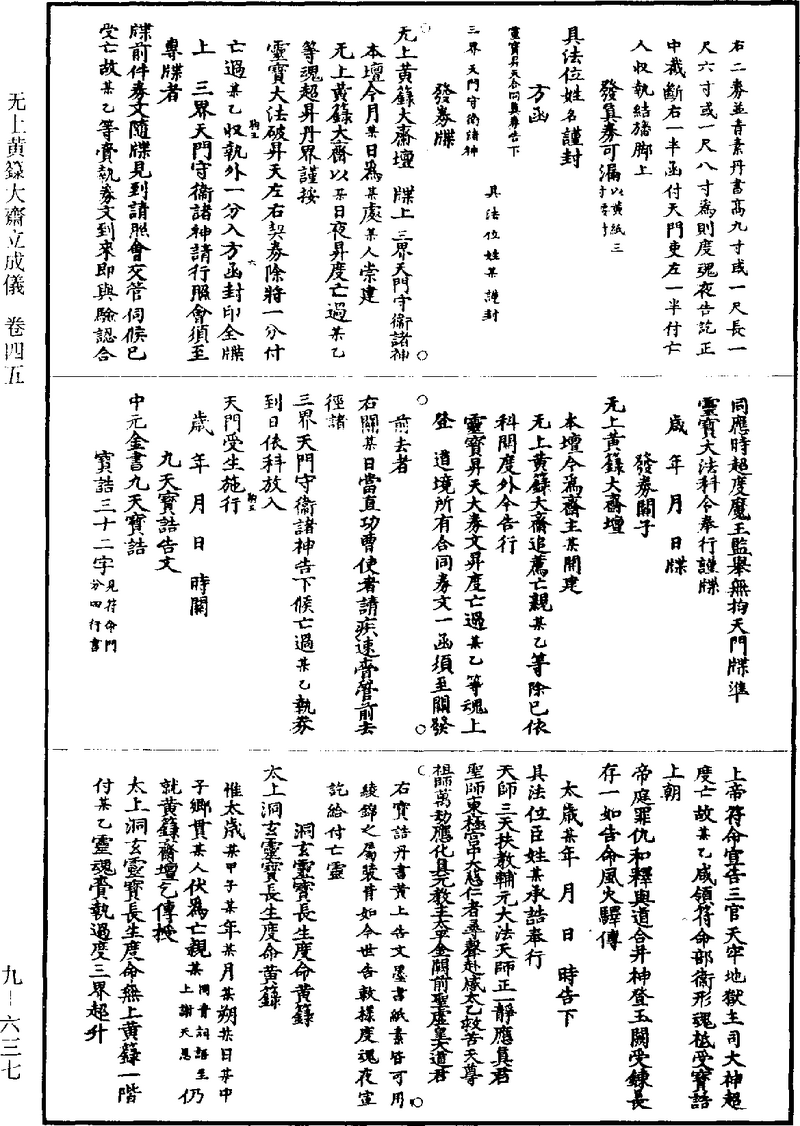 右二券並青素丹書高九寸或一尺長一
尺六寸或一尺八寸為則度魂夜告訖正
中截斷右一半函付天門吏左一半付亡
人收執結旛脚上
發真券可漏以黃紙三寸委封
具法位姓名謹封
方函
靈寶昇天合同真券告下
具法位姓某謹封
三界天門守衛諸神
發券牒
无上黃籙大齋壇　牒上三界天門守衛諸神
本壇今月某日為某處某人崇建
无上黃籙大齋以某日夜昇度亡過某乙
等魂超昇丹界謹按
靈寶大法破昇天左右契券除將一分付
亡過某乙收執外一分入方函封印全牒
上　三界天門守衛諸神請行照會須至
專牒者
牒前件券文隨牒見到請照會交管伺候已
受亡故某乙等賫執券文到來即與驗認合
同應時超度魔王監舉無拘天門牒準
靈寶大法科令奉行謹牒
歲　年　月　日牒
發券關子
无上黃籙大齋壇
本壇今為齋主某開建
无上黃籙大齋追薦亡親某乙等除已依
科開度外今告行
靈寶昇天大券文昇度亡過某乙等魂上
登　道境所有合同券文一函須至關發
前去者
右關某日當直功曹使者請疾速賫管前去
徑諸
三界天門守衛諸神告下候亡過某乙執券
到日依科放入
天門受生施行
歲　年　月　日　時關
九天寶誥告文
中元金書九天寶誥
寶誥三十二字見符命門分四行書
上帝符命宣告三官天牢地獄主司大神超
度亡故某乙咸領符命部衛形魂祗受寶誥
上朝
帝庭罪仇和釋與道合并神登玉闕受鍊長
存一如告命風火驛傳
太歲某年　月　日　時告下
具法位臣姓某承誥奉行
天師三天扶教輔元大法天師正一靜應真君
聖師東極宮中大慈仁者尋聲赴感太乙救苦天尊
祖師萬劫應化具元教主太平金闕前聖虛皇大道君
右寶誥丹書黃上告文墨書紙素皆可用
綾錦之屬裝背如今世告軟様度魂夜宣
訖給付亡靈
洞玄靈寶長生度命黃籙
太上洞玄靈寶長生度命黃籙
惟太歲某甲子某年某月某朔某日某中
子鄉貫某人伏為亡親某開青詞語至上謝天恩仍
就黃籙齋壇乞傳授
太上洞玄靈寶長生度命無上黃籙一階
付某乙靈魂賫執過度三界超升
无上黃籙大齋立成儀　卷四五
九—六三七